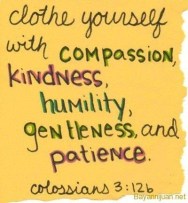 clothe yourself
with COMPASSION,
kindness,
humility,
gentleness, and
patience.
colossians 3:12b
Bayannijuan.net